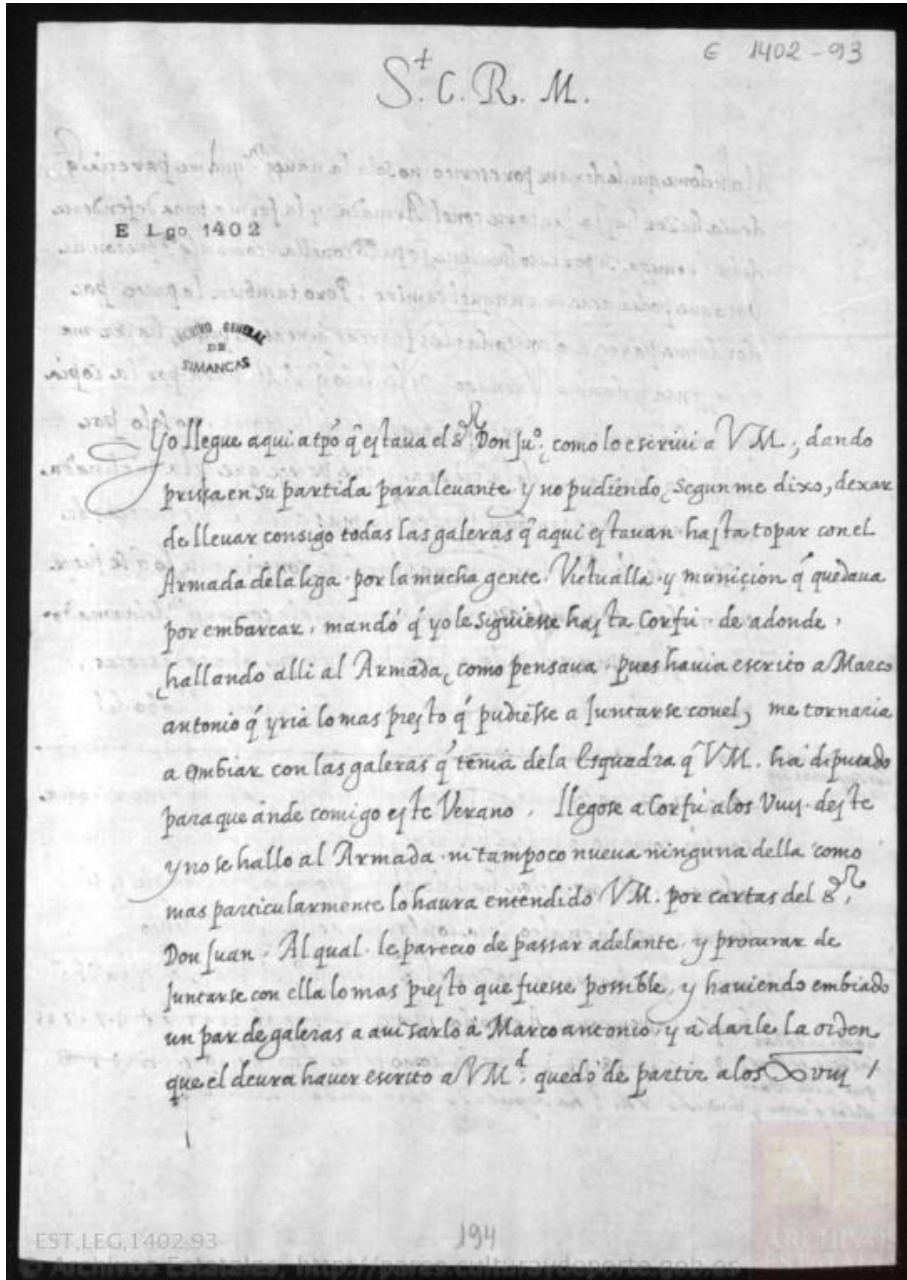 E 1402-93
S.t C. R. M.
E Lgo. 1402
ARCHIVO GENERAL
DE
SIMANCAS
Yo llegue aqui a tpõ q̃ estava el s.or Don Ju.o, como lo escrivi a V M, dando
prissa en su partida para levante y no pudiendo, segun me dixo, dexar
de llevar consigo todas las galeras q̃ aqui estavan hasta topar con el
Armada de la lega por la mucha gente. Victualla y munición q̃ quedava
por embarcar, mandó q̃ yo le siguiesse hasta Corfu de adonde,
hallando alli al Armada, como pensava, pues havia escrito a Marco
antonio q̃ yria lo mas presto q̃ pudiesse a Juntarse con el, me tornaria
a embiar con las galeras q̃ tenia de la Esquadra q̃ V M. ha diputado
para que ande comigo este Verano. Llegose a Corfu a los Viiij deste
y no se hallo al Armada ni tampoco nueva ninguna della como
mas particularmente lo haura entendido V M. por cartas del s.or
Don Juan. Al qual le parecio de passar adelante y procurar de
Juntarse con ella lo mas presto que fuesse possible, y haviendo embiado
un par de galeras a avisarlo a Marco antonio, y a darle la orden
que el deura haver escrito a V M.d quedó de partir a los
194
EST,LEG,1402,93